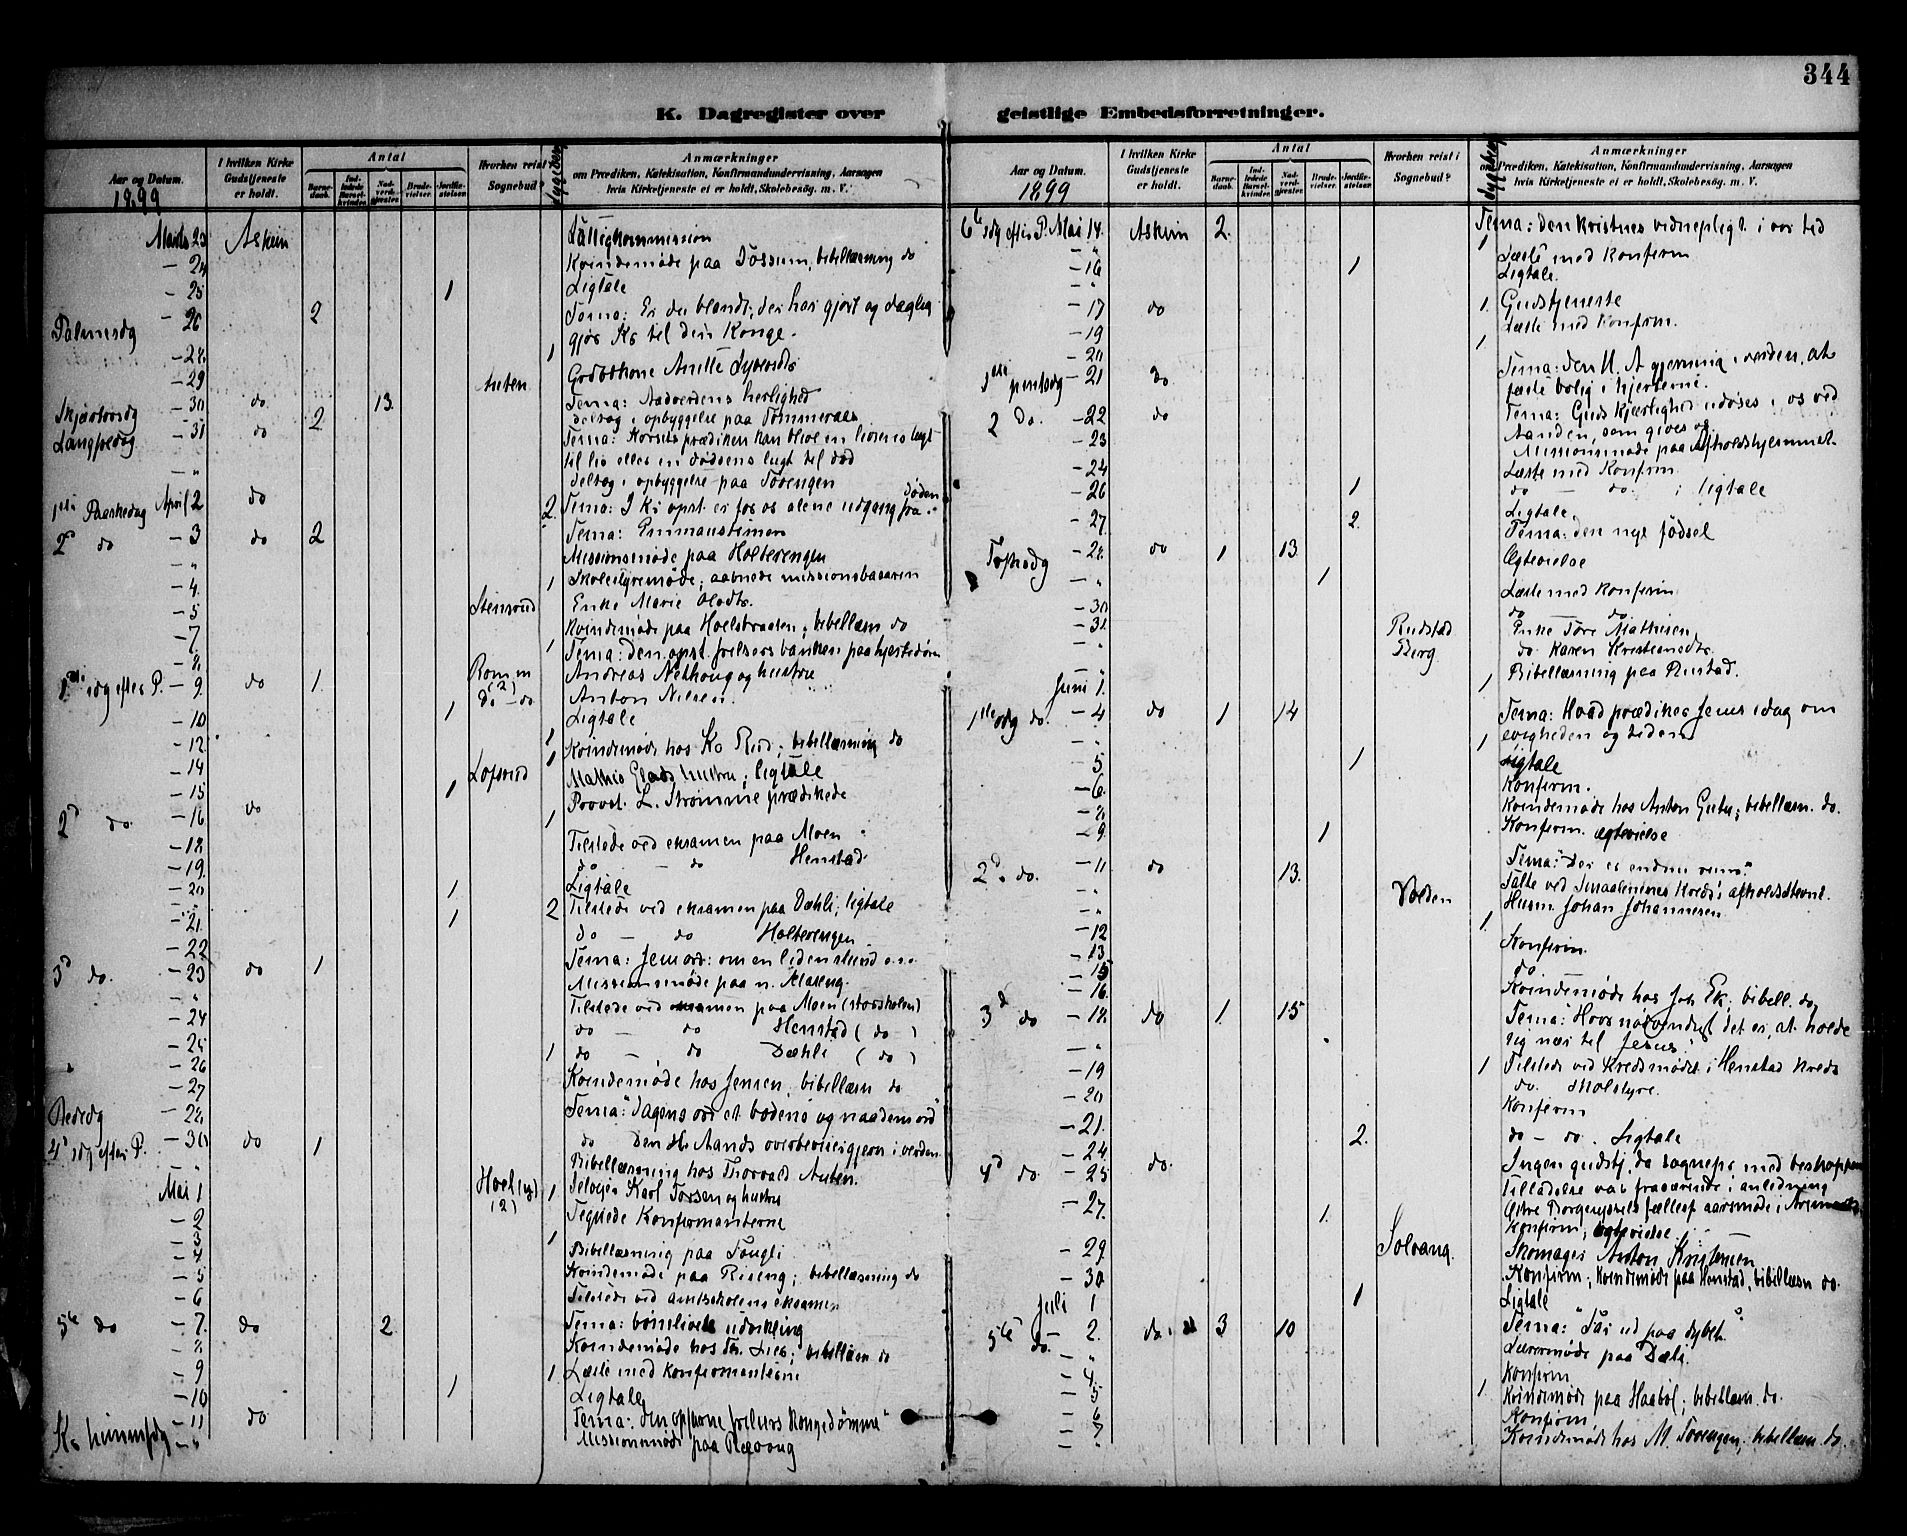 344
K. Dagregister over geistlige Embedsforretninger.
Aar og Datum.
1899
I hvilken Kirke Gudstjeneste er holdt.
Antal
Barnedaab.
Indledede Barselkvinder.
Nadverdgjester.
Brudevielser.
Jordfæstelser.
Hvorhen reist i Sognebud?
Anmærkninger
om Prædiken, Katekisation, Konfirmandundervisning, Aarsagen hvis Kirketjeneste ei er holdt, Skolebesøg. m. V.
Marts 23 Askim Fattigkommission
— 24 Kvindemøde paa Dossum, bibellæsning do
— 25 1 Ligtale
Palmesdg — 26 2 Tema: Er du blandt, der har gjort og daglig
gjør Ks til din Konge.
— 28 1
— 29 Auten Godtskone Anitte
Skjærtorsdg — 30 do 13 Tema: Nadverdens herlighed
2 deltog i opbyggelse paa Sommeraas
Langfredag — 31 do Tema: Korsets prædiken kan blive en livsens lugt
til liv eller en dødsens lugt til død
— " deltog i opbyggelse paa Torengen
1ste Paaskedag April 2 do 2 Tema: I Ks opst. er for os alene udgang fra døden
2d do — 3 do 2 Tema: Emmaustimen
— " Missionsmøde paa Holterengen
— 4 1 Skolestyremøde; aabnede missionsbasaren
— 5 Stensrud Enke Marie Olsdtr.
— 7 Kvindemøde paa Hoelsbraaten; bibellæsn do
— 8 1
1ste sdg efter P. — 9 do 1 Romm (2) Tema: den opst. frelsers banken paa hjertedøren
Andreas Nethong og hustru
do — do Anton Nilsen.
— 10 1 Ligtale
— 12 1 Kvindemøde hos Ks Rud; bibellæsning do
— 14 1 Lofsrud Mathis hustru; ligtale
— 15 1
2d do — 16 do Provst L. Strømme prædikede
— 18 1 Tilstede ved eksamen paa Moen
— 19 do — do Henstad
— 20 1 Ligtale
— 21 1 2 Tilstede ved eksamen paa Dæhli; ligtale
— 22 do — do Holterengen
3d do. — 23 do 1 Tema: Jesu ord: om en liden stund o.s.v.
— " Missionsmøde paa n. Klæseng.
— 24 Tilstede ved eksamen paa Moen (storskolen)
— 25 do — do Henstad (do)
— 26 1 do — do Dæhli (do)
— 27 Kvindemøde hos Jensen, bibellæsn do
Bededg — 28 Tema: "Dagens ord et bodens og naadens ord"
4d sdg efter P. — 30 do 1 do Den H. Aands overbevisn. gjern i verden
— " Bibellæsning hos Thorvald Auten.
Mai 1 Hoel (2) 1 Selveier Karl Torsen og hustru
— 2 Tegnede Konfirmanterne
— 3 1
— 4 Bibellæsning paa Fougli
— 5 Kvindemøde paa Riseng; bibellæsning do
— 6 Tilstede ved amtsskolens eksamen
5te do — 7 do 2 Tema: bønslivets udvikling
— 8 Kvindemøde hos Th. Lier; bibellæsn do
— 9 1 Læste med Konfirmanterne
— 10 1 Ligtale
Ks himmelfdg — 11 do Tema: "den opfarne frelsers Kongedømme"
— " Missionsmøde paa Rævoug
Aar og Datum.
1899
I hvilken Kirke Gudstjeneste er holdt.
Antal
Barnedaab.
Indledede Barselkvinder.
Nadverdgjester.
Brudevielser.
Jordfæstelser.
Hvorhen reist i Sognebud?
Anmærkninger
om Prædiken, Katekisation, Konfirmandundervisning, Aarsagen hvis Kirketjeneste ei er holdt, Skolebesøg. m. V.
6te sdg efter P. Mai 14. Askim 2. Tema: den kristnes vidnepligt i vor tid
— " 1
— 16 1 Læste med Konfirm
— " Ligtale.
— 17 do 1 Gudstjeneste
— 19 Læste med Konfirm.
— 20 1
1ste pintsdg — 21 do Tema: den H. A gjerning i verden, at
fæste bolig i hjerterne.
2 do. — 22 do Tema: Guds kjærlighed udøses i os ved
Aanden, som gives os
— 23 Missionsmøde paa Afholdshjemmet
— 24 Læste med Konfirm.
— 26 1 do — do ; ligtale
— 27 2. Ligtale.
Tefsdg — 28 do 1 13 Tema: den nye fødsel
— " 1 Ægtevielse
— 30 Læste med Konfirm
— 31 do — do
— " Rudstad Enke Tore Mathisen
— " Berg do. Karen Kristiansdtr.
Juni 1. 1 Bibellæsning paa Rustad.
1ste sdg do. — 4 do 1 14 Tema: Hvad prædiker Jesus idag om
evigheden og tiden
— " 1
— 5 1 Ligtale
— 6. Konfirm.
— 8 Kvindemøde hos Anton Guten; bibellæsn. do.
— 9. 1 Konfirm. ægtevielse
2d do. — 11 do 13. Tema: "Der er endnu rum."
— " Talte ved Smaalenenes Kreds's afholdsstevne.
— " Volden Husm. Johan Johannesen
— 12 1
— 13 Konfirm.
— 15 do
— 16. Kvindemøde hos Joh Ek; bibell. do
3d do — 18. do 1. 15 Tema: Hvor nødvendigt det er, at holde
sig nær til Jesus.
— "
— 19 1 Tilstede ved Kredsmødet i Henstad Kreds
— 20 do. Skolestyre.
— 21. Konfirm
— 24. 2. do — do. Ligtale
4d do — 25 do. Ingen gudstj. da sognepr. med beskoppens
tilladelse var fraværende i anledning
Østre Borgesyssels fællesf aarsmøde i
— 27. 1. Konfirm; ægtevielse
— 29. Solvang. Skomager Anton Kristensen
— 30. Konfirm; Kvindemøde paa Henstad, bibellæsn do
Juli 1 1 Ligtale
5te do. — 2. do. 3 10 Tema: "Far ud paa dybet."
— " Lærermøde paa Dæli.
— 4. Konfirm
— 5 1. Kvindemøde paa Haabøl; bibellæsn do.
— 6 Konfirm
— 7 Kvindemøde hos M. Torengen; bibellæsn do
— "